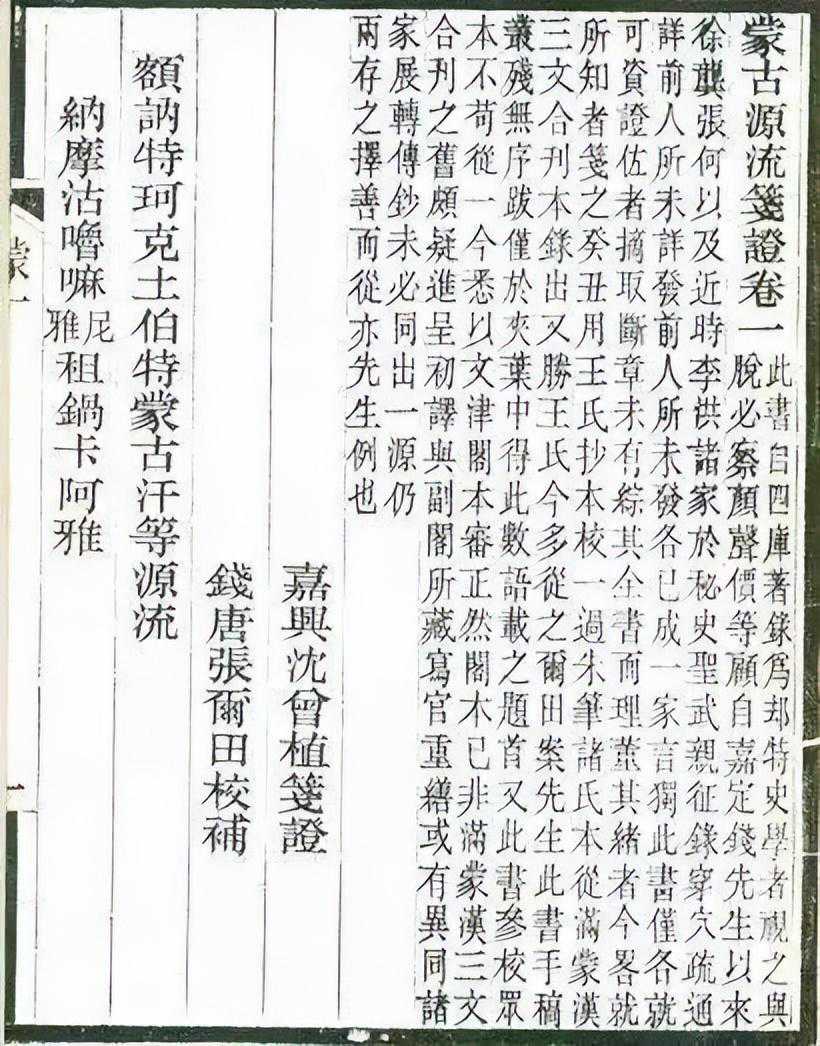 蒙古源流箋證卷一
此書自四庫著錄爲却特史學者視之與
脫必察顏聲價等顧自嘉定錢先生以來
徐龔張何以及近時李洪諸家於秘史聖武親征錄穿穴疏通
詳前人所未詳發前人所未發各已成一家言獨此書僅各就
可資證佐者摘取斷章未有綜其全書而理董其緒者今畧就
所知者箋之癸丑用王氏抄本校一過朱筆諸氏本從滿蒙漢
三文合刊本錄出又勝王氏今多從之爾田案先生此書手稿
叢殘無序跋僅於夾葉中得此數語載之題首又此書參校眾
本不苟從一今悉以文津閣本審正然閣本已非滿蒙漢三文
合刊之舊頗疑進呈初譯與副閣所藏寫官重繕或有異同諸
家展轉傳鈔未必同出一源仍
兩存之擇善而從亦先生例也
嘉興沈曾植箋證
錢唐張爾田校補
額訥特珂克土伯特蒙古汗等源流
納摩沽嚕嘛尼雅租鍋卡阿雅
蒙一
一